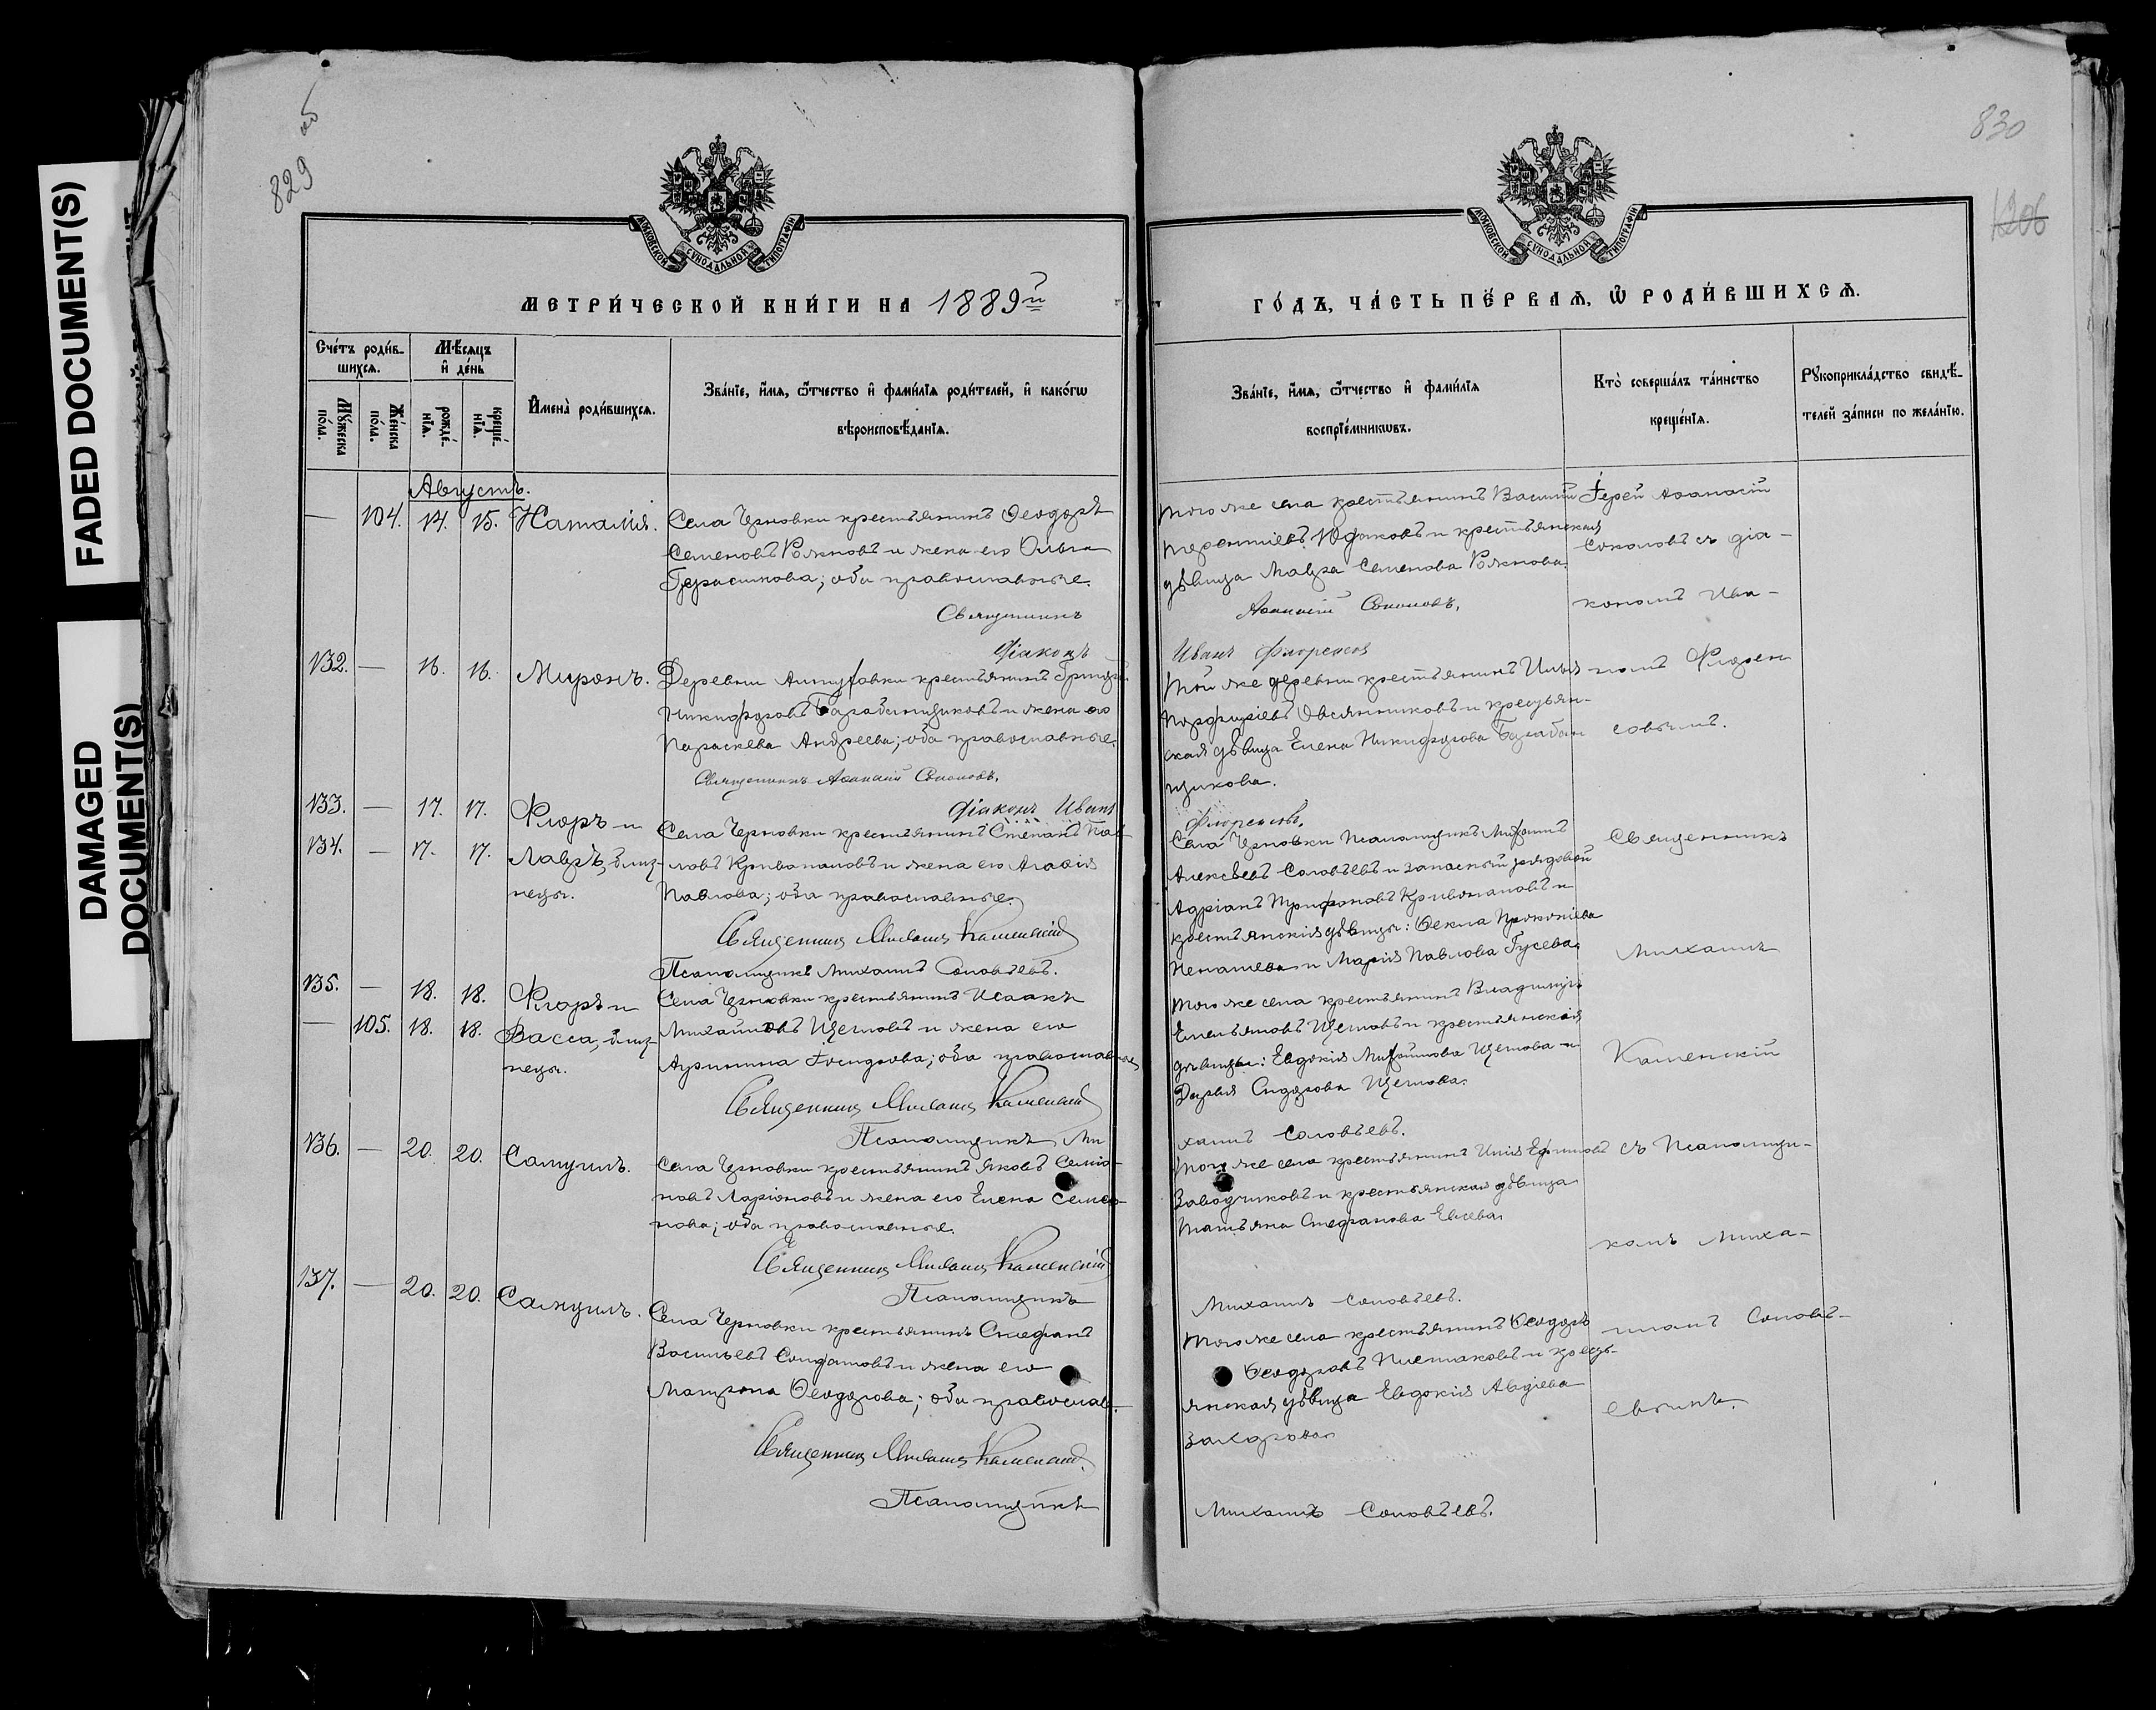 829 об
830
1206
FADED DOCUMENT(S)
DAMAGED
DOCUMENT(S)
МОСКОВСКОЙ СѴНОДАЛЬНОЙ ТИПОГРАФІИ
МОСКОВСКОЙ СѴНОДАЛЬНОЙ ТИПОГРАФІИ
МЕТРИ́ЧЕСКОЙ КНИ́ГИ НА 1889й
ГО́ДЪ, ЧА́СТЬ ПЕ́РВАѦ, Ѡ҆ РОДИ́ВШИХСѦ.
Сче́тъ роди́в-
шихсѧ.
Мѣ́сѧцъ
и҆ де́нь
Мꙋ́жеска
по́ла.
Же́нска
по́ла.
рожде́-
нїѧ.
креще́-
нїѧ.
И҆мена̀ роди́вшихсѧ.
Зва́нїе, и҆́мѧ, ѻ҆́тчество и҆ фами́лїѧ роди́телей, и҆ како́гѡ
вѣроисповѣ́данїѧ.
Зва́нїе, и҆́мѧ, ѻ҆́тчество и҆ фами́лїѧ
воспрїе́мникѡвъ.
Кто̀ соверша́лъ та́инство
креще́нїѧ.
Рꙋкоприкла́дство свидѣ́-
телей за́писи по жела́нїю.
Августъ.
— 104. 14. 15. Наталія.
Села Черновки крестьянинъ Ѳеодоръ
Семеновъ Рожновъ и жена его Ольга
Герасимова; оба православные.
Священникъ
Діаконъ
того же села крестьянинъ Василій
Терентіевъ Юдаковъ и крестьянская
дѣвица Мавра Семенова Рожнова.
Аѳанасій Соколовъ.
Иванъ Флоренсов
Іерей Аѳанасій
Соколовъ съ діа-
кономъ Ива-
номъ Флорен
совымъ.
132. — 16. 16. Миронъ.
Деревни крестьянинъ Григор.
Никифоровъ Барабанщиковъ и жена его
Параскева Андреева; оба православные.
Священникъ Аѳанасій Соколовъ.
Діаконъ Иванъ
Той же деревни крестьянинъ Илья
Порфиріевъ Овсянниковъ и крестьян-
ская дѣвица Елена Никифорова Барабан
щикова.
Флоренсовъ.
133. — 17. 17. Флоръ и
134. — 17. 17. Лавръ, близ-
нецы.
Села Черновки крестьянинъ Степанъ Пав-
ловъ Кривопаловъ и жена его Агаѳія
Павлова; оба православные.
Священникъ Михаилъ Каменскій
Псаломщикъ Михаилъ Соловьевъ.
Села Черновки Псаломщикъ Михаилъ
Алексѣевъ Соловьевъ и запасный рядовой
Адріанъ Трифоновъ Кривопаловъ и
крестьянскія дѣвицы: Ѳекла Прокопіева
Ненашева и Марія Павлова Гусева.
Священникъ
Михаилъ
Каменскій
съ Псаломщи-
комъ Миха-
иломъ Соловь-
евымъ.
135. — 18. 18. Флоръ и
— 105. 18. 18. Васса, близ-
нецы.
Села Черновки крестьянинъ Исаакъ
Михайловъ Щегловъ и жена его
Акулина Ісидорова; оба православные
Священникъ Михаилъ Каменскій
Псаломщикъ Ми
того же села крестьянинъ Владиміръ
Емельяновъ Щегловъ и крестьянскія
дѣвицы: Евдокія Михайлова Щеглова и
Дарья Сидорова Щеглова.
хаилъ Соловьевъ.
136. — 20. 20. Самуилъ.
Села Черновки крестьянинъ Яковъ Семіо-
новъ Ларіоновъ и жена его Елена Семео-
нова; оба православные.
Священникъ Михаилъ Каменскій
Псаломщикъ
Того же села крестьянинъ Илія Ефимовъ
Заводчиковъ и крестьянская дѣвица
Татьяна Стефанова Евсева.
Михаилъ Соловьевъ.
137. — 20. 20. Самуилъ.
Села Черновки крестьянинъ Стефанъ
Васильевъ Солдатовъ и жена его
Матрона Ѳеодорова; оба православ.
Священникъ Михаилъ Каменскій.
Псаломщикъ
Того же села крестьянинъ Ѳеодоръ
Ѳеодоровъ Плешаковъ и кресть-
янская дѣвица Евдокія Авдіева
Захарова
Михаилъ Соловьевъ.